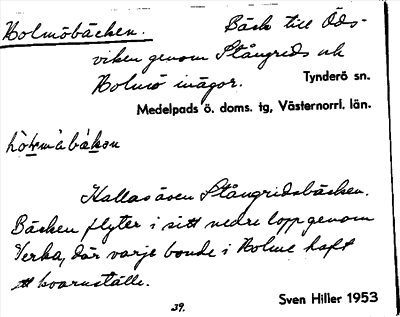 Holmöbäcken. Bäck till Öds-
viken genom Stångrids och
Holmö inägor. Tynderö sn.
Medelpads ö. doms. tg, Västernorrl. län.
Kallas även Stångridsbäcken.
Bäcken flyter i sitt nedre lopp genom
där varje bonde i Holme haft
ett kvarnställe.
39.
Sven Hiller 1953